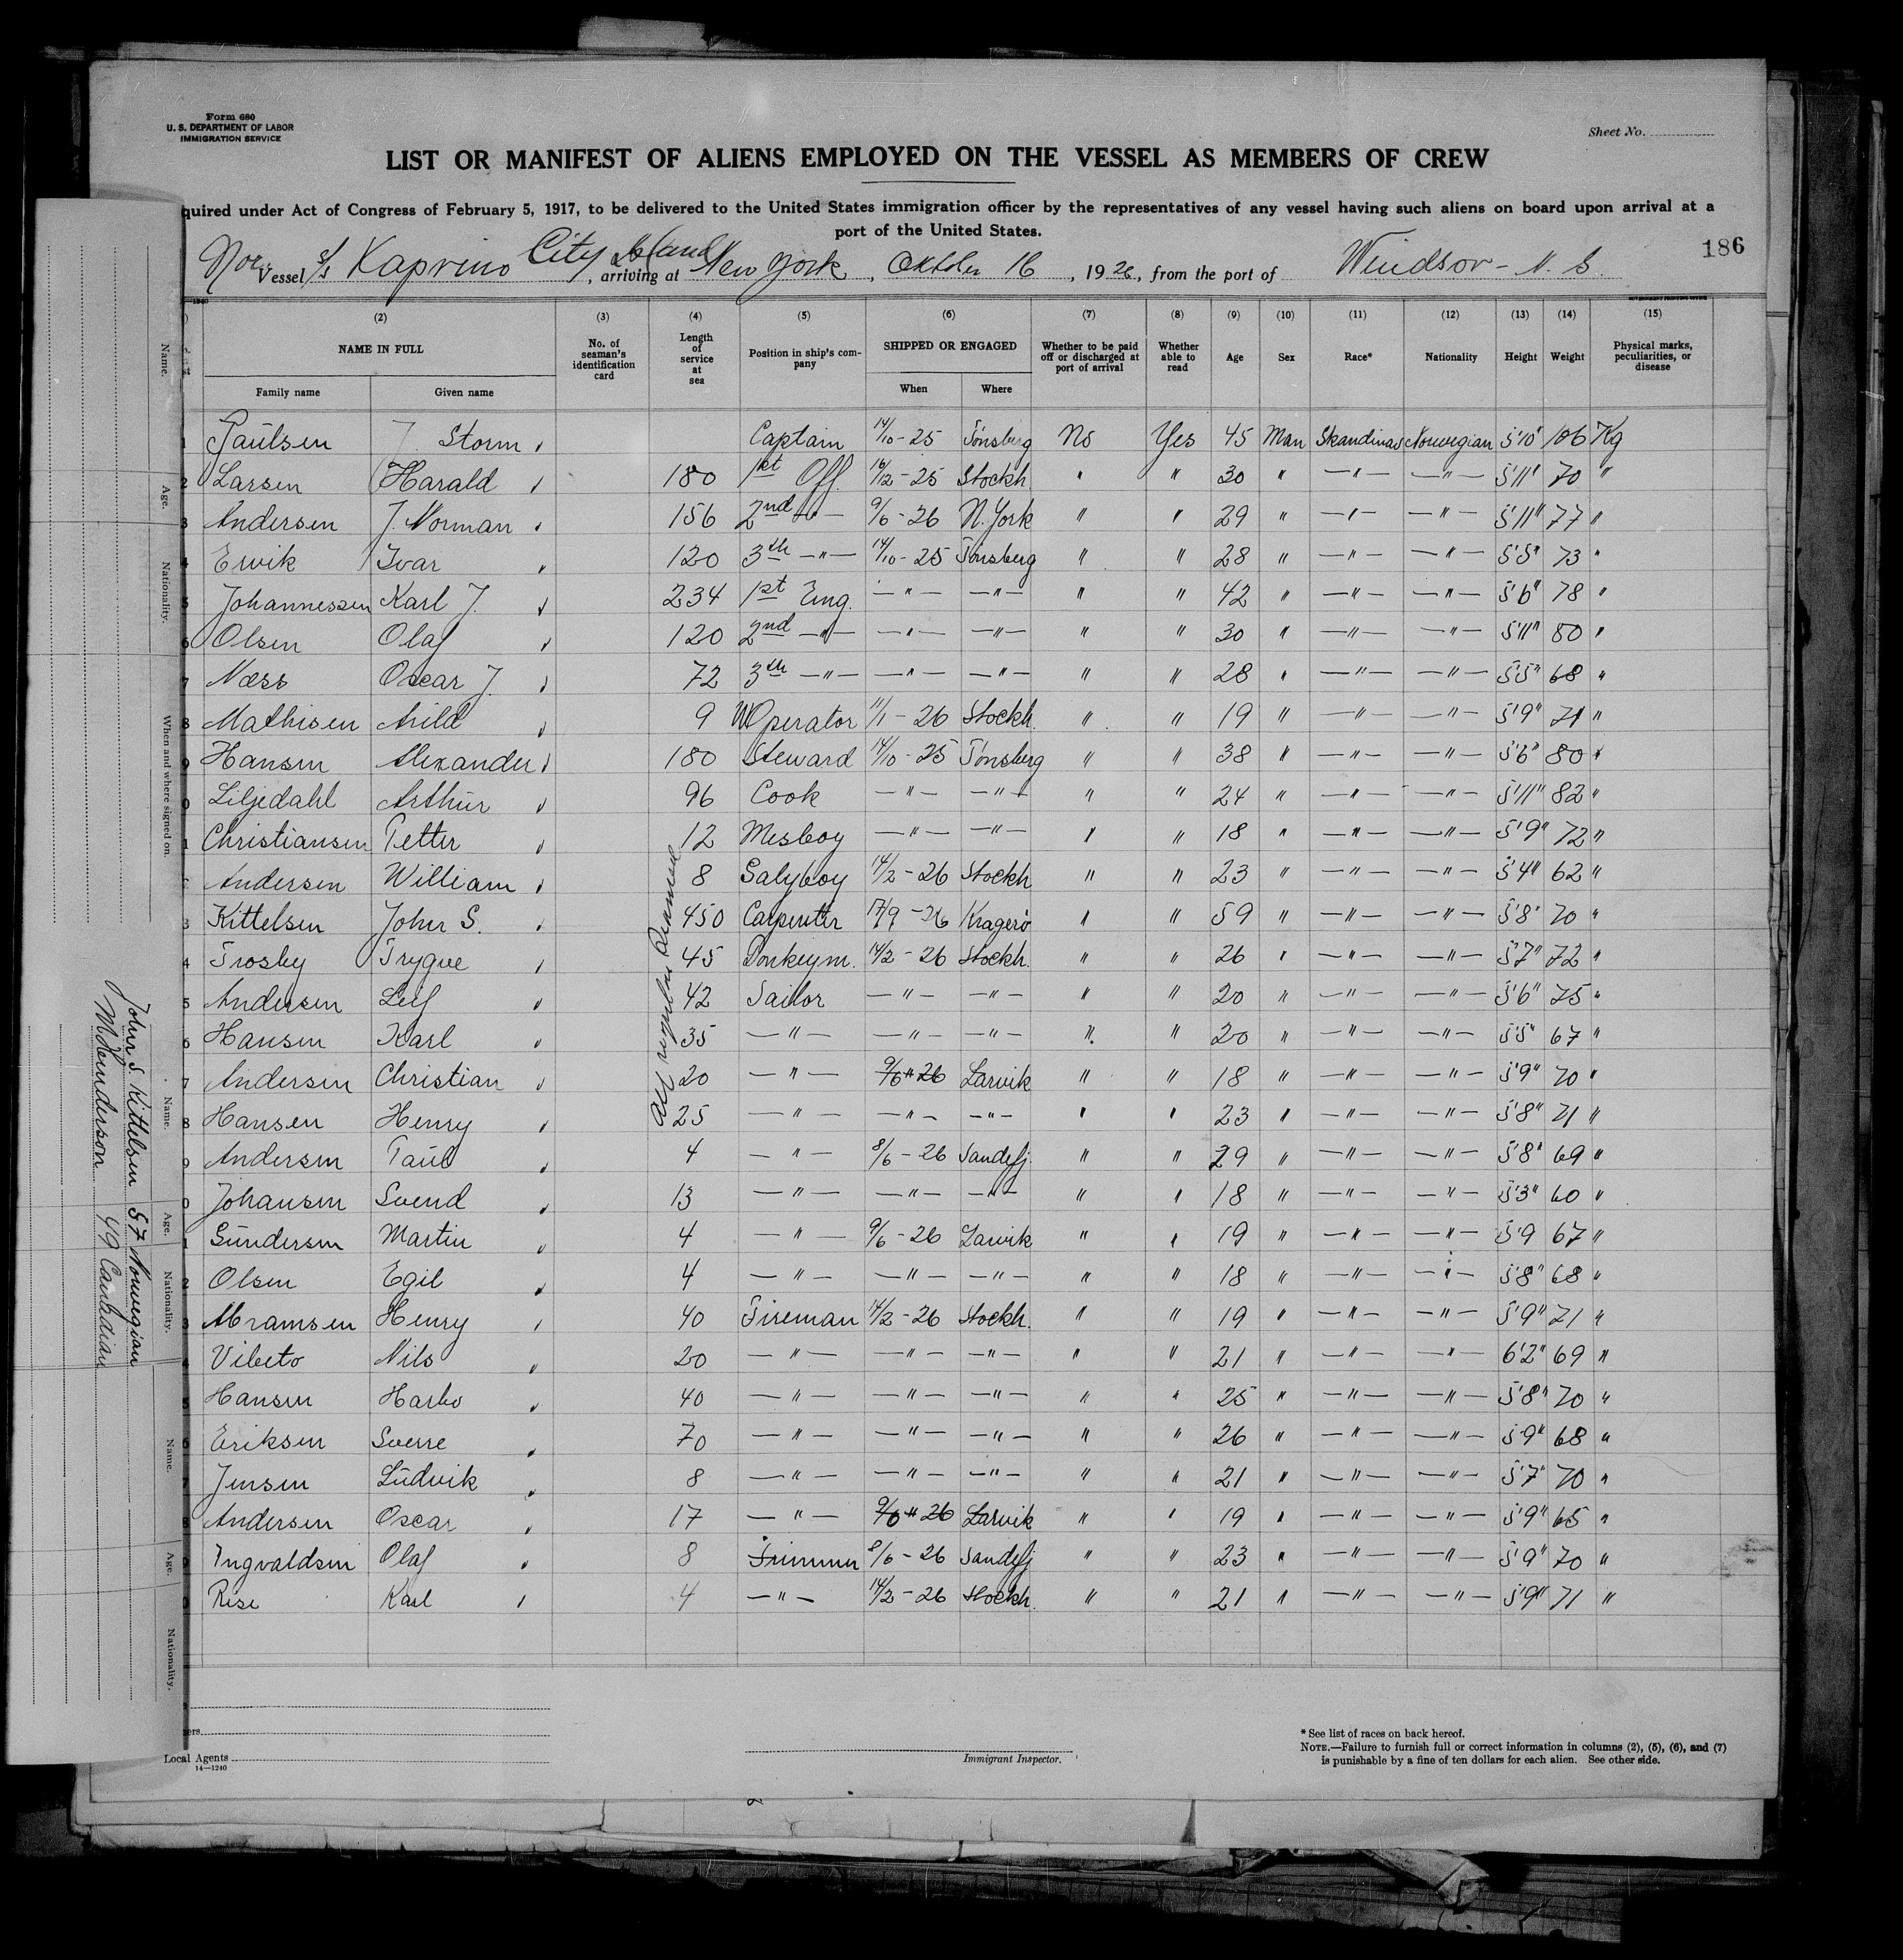 Form 680
U. S. DEPARTMENT OF LABOR
IMMIGRATION SERVICE
Sheet No.
LIST OR MANIFEST OF ALIENS EMPLOYED ON THE VESSEL AS MEMBERS OF CREW
quired under Act of Congress of February 5, 1917, to be delivered to the United States immigration officer by the representatives of any vessel having such aliens on board upon arrival at a
port of the United States.
186
Nor. Vessel s/s Kaprino, arriving at City Island New York, Oktober 16, 1926, from the port of Windsor - N. S.
(2) (3) (4) (5) (6) (7) (8) (9) (10) (11) (12) (13) (14) (15)
NAME IN FULL No. of seaman's identification card Length of service at sea Position in ship's company SHIPPED OR ENGAGED Whether to be paid off or discharged at port of arrival Whether able to read Age Sex Race* Nationality Height Weight Physical marks, peculiarities, or disease
Family name Given name When Where
1 Paulsen J. Storm Captain 14/10-25 Tönsberg No Yes 45 Man Skandinav Norwegian 5'10" 106 Kg
2 Larsen Harald 180 1st Off. 16/12-25 Stockh. " " 30 " —"— —"— 5'11" 70 "
3 Andersen J. Norman 156 2nd —"— 9/6-26 N. York " " 29 " —"— —"— 5'11" 77 "
4 Ervik Ivar 120 3th —"— 14/10-25 Tönsberg " " 28 " —"— —"— 5'5" 73 "
5 Johannessen Karl J. 234 1st Eng. —"— —"— " " 42 " —"— —"— 5'6" 78 "
6 Olsen Olaf 120 2nd —"— —"— —"— " " 30 " —"— —"— 5'11" 80 "
7 Næss Oscar J. 72 3th —"— —"— —"— " " 28 " —"— —"— 5'5" 68 "
8 Mathisen Arild 9 W Operator 11/1-26 Stockh. " " 19 " —"— —"— 5'9" 71 "
9 Hansen Alexander 180 Steward 14/10-25 Tönsberg " " 38 " —"— —"— 5'6" 80 "
0 Liljedahl Arthur 96 Cook —"— —"— " " 24 " —"— —"— 5'11" 82 "
1 Christiansen Petter 12 Mesboy —"— —"— " " 18 " —"— —"— 5'9" 72 "
Andersen William 8 Galyboy 14/2-26 Stockh " " 23 " —"— —"— 5'4" 62 "
3 Kittelsen Joher S. 450 Carpenter 17/9-26 Kragerö " " 59 " —"— —"— 5'8" 70 "
4 Trosby Trygve 45 Donkeym. 14/2-26 Stockh. " " 26 " —"— —"— 5'7" 72 "
5 Andersen Leif 42 Sailor —"— —"— " " 20 " —"— —"— 5'6" 75 "
6 Hansen Karl 35 —"— —"— —"— " " 20 " —"— —"— 5'5" 67 "
7 Andersen Christian 20 —"— 9/6-26 Larvik " " 18 " —"— —"— 5'9" 70 "
8 Hansen Henry 25 —"— —"— —"— " " 23 " —"— —"— 5'8" 71 "
9 Andersen Paul 4 —"— 8/6-26 Sandefj. " " 29 " —"— —"— 5'8" 69 "
0 Johansen Svend 13 —"— —"— —"— " " 18 " —"— —"— 5'3" 60 "
1 Gundersen Martin 4 —"— 9/6-26 Larvik " " 19 " —"— —"— 5'9 67 "
2 Olsen Egil 4 —"— —"— —"— " " 18 " —"— —"— 5'8" 68 "
3 Abramsen Henry 40 Fireman 14/2-26 Stockh. " " 19 " —"— —"— 5'9" 71 "
4 Vibeto Nils 20 —"— —"— —"— " " 21 " —"— —"— 6'2" 69 "
5 Hansen Harbo 40 —"— —"— —"— " " 25 " —"— —"— 5'8" 70 "
6 Eriksen Sverre 70 —"— —"— —"— " " 26 " —"— —"— 5'9" 68 "
7 Jensen Ludvik 8 —"— —"— —"— " " 21 " —"— —"— 5'7" 70 "
8 Andersen Oscar 17 —"— 9/6-26 Larvik " " 19 " —"— —"— 5'9" 65 "
9 Ingvaldsen Olaf 8 Trimmer 8/6-26 Sandefj " " 23 " —"— —"— 5'9" 70 "
0 Rise Karl 4 —"— 14/2-26 Stockh. " " 21 " —"— —"— 5'9" 71 "
All regular
ers
Local Agents
14—1240
Immigrant Inspector.
* See list of races on back hereof.
NOTE.—Failure to furnish full or correct information in columns (2), (5), (6), and (7)
is punishable by a fine of ten dollars for each alien. See other side.
Name. Age. Nationality. When and where signed on.
Name. Age. Nationality.
Name. Age. Nationality.
Joher S. Kittelsen 57 Norwegian
M Henderson 49 Canadian